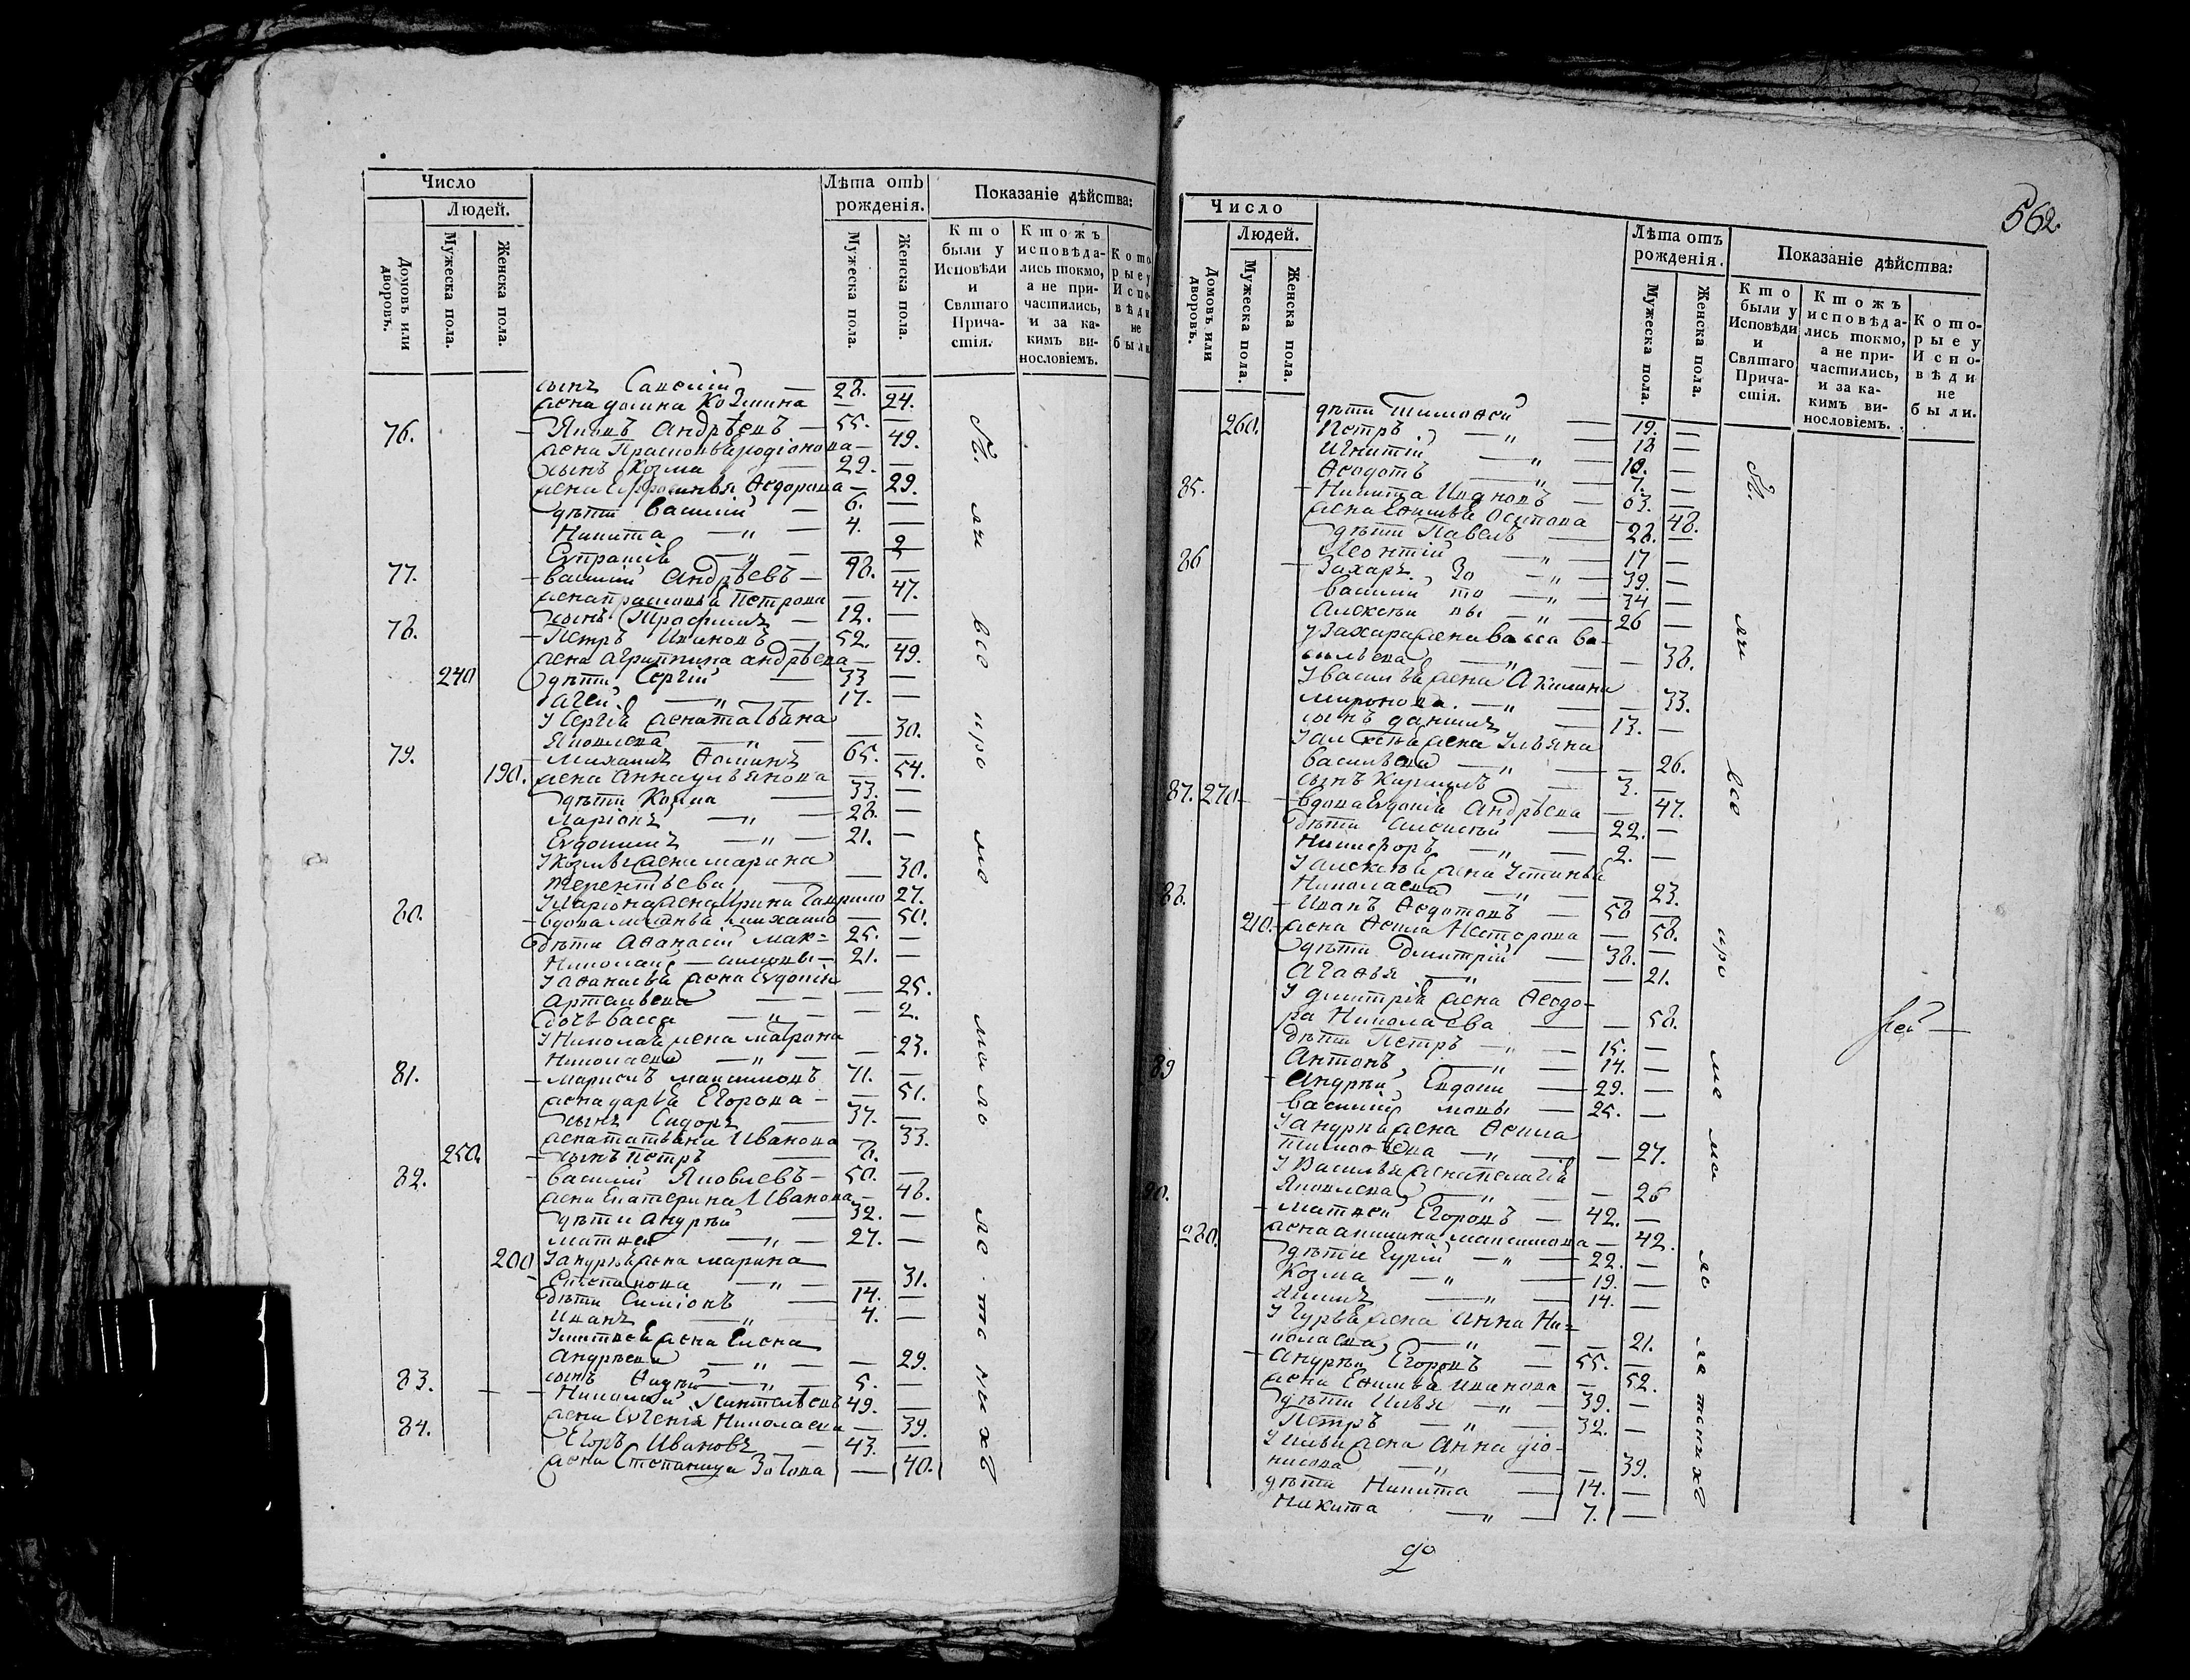 Число
Людей.
Домовъ или дворовъ.
Мужеска пола.
Женска пола.
Лѣта отъ рожденія.
Мужеска пола.
Женска пола.
Показаніе дѣйства:
Кто были у Исповѣди и Святаго Причастія.
Ктожъ исповѣдались токмо, а не причастились, и за какимъ винословіемъ.
Которые у Исповѣди не были
сынъ — 28. —
жена Козмина — 24.
76. Яковъ Андрѣевъ — 55. —
жена Родіонова — 49.
сынъ Козма — 29. —
жена Ефросинья Ѳедорова — 29.
дѣти Василій — 6. —
Никита — „ — 4. —
— „ — — 2
77. Василій Андрѣевъ — 48. —
жена Петрова — 47.
сынъ Трофимъ — 12. —
78. Петръ Ивановъ — 52. —
жена Агриппина Андрѣева — 49.
240 дѣти Сергій — 33 —
Агей — „ — 17. —
У Сергія жена Татьяна
Яковлева — „ — 30.
79. Михаилъ Ѳоминъ 65. —
190. жена Анна Ульянова — 54.
дѣти Козма — 33. —
Ларіонъ — „ — 28. —
Евдокимъ — „ — 21. —
У Козмы жена Марина
Терентьева — 30.
У Ларіона жена Ирина Гаврило 27.
80. вдова Михайло — 50.
дѣти Аѳанасій Мак= 25. —
Николай — симовы — 21. —
У Аѳанасія жена Евдокія
— — 25.
дочь Васса — „ — — 2.
У Николая жена Матрона
Николаева — „ — — 23.
81. Максимовъ 71. —
жена Дарья Егорова — — 51.
сынъ Сидоръ — 37. —
жена Татьяна Иванова — 33.
250. сынъ Петръ — 8. —
82. Василій Яковлевъ — 50. —
жена Екатерина Иванова — 48.
дѣти Андрѣй — 32. —
Матвей — „ — 27. —
200 У Андрѣя жена Марина
Степанова — „ — — 31.
дѣти Симіонъ — 14. —
Иванъ — „ — 4. —
У Матвея жена Елена
Андрѣева — „ — — 29.
сынъ — „ — 5. —
83. Николай 49. —
жена Евгенія Николаева — 39.
84. Егоръ Ивановъ — 43. —
жена Степанида Зотова — 40.
562.
Число
Людей.
Домовъ или дворовъ.
Мужеска пола.
Женска пола.
Лѣта отъ рожденія.
Мужеска пола.
Женска пола.
Показаніе дѣйства:
Кто были у Исповѣди и Святаго Причастія.
Ктожъ исповѣдались токмо, а не причастились, и за какимъ винословіемъ.
Которые у Исповѣди не были.
дѣти Тимоѳей — 19. —
260. Петръ — „ — 18 —
Игнатій — „ — 10. —
Ѳеодотъ — „ — 7. —
85. Никита Ивановъ — 63. —
жена Осипова — 48.
дѣти Павелъ — 28. —
Леонтій — „ — 17 —
86 Захаръ Зо — „ — 39. —
Василій то — „ — 34 —
Алексѣй вы — „ — 26 —
У Захара жена Васса Ва-
сильева — „ — — 38.
У Василья жена Акилина
Миронова. — „ — — 33.
сынъ Даніилъ — 13. —
У Алексѣя жена Ульяна
Васильева — „ — — 26.
сынъ Кирилъ — 3. —
87. 270 вдова Евдокія Андрѣева — 47.
дѣти Алексѣй — 22. —
Никифоръ — „ — 2. —
У Алексѣя жена Устинья
Николаева — „ — — 23.
88. Иванъ Ѳедотовъ — 58 —
210. жена Ѳекла Несторова — 58.
дѣти Дмитрій — 38. —
Агаѳья — „ — — 21.
У Димитрія жена Ѳеодо-
ра Николаева — — 58.
дѣти Петръ — „ — 15. —
Антонъ, — „ — 14. —
89 Андрѣй Евдоки — 29. —
Василій мовы — 25. —
У Андрѣя жена Ѳекла
Тимоѳеева — „ — — 27.
У Василья жена Пелагія
Яковлева — „ — — 28
90. Матвей Егоровъ — 42. —
280. жена Максимова — 42.
дѣти Гурій — „ — 22. —
Козма — „ — 19. —
— „ — 14. —
У Гурья жена Анна Ни=
колаева, — „ — — 21.
Андрѣй Егоровъ — 55. —
жена Иванова — 52.
дѣти Илья — „ — 39. —
Петръ — „ — 32. —
У Ильи жена Анна Діо-
нисова — „ — — 39.
дѣти Никита — 14. —
Никита — „ — 7. —